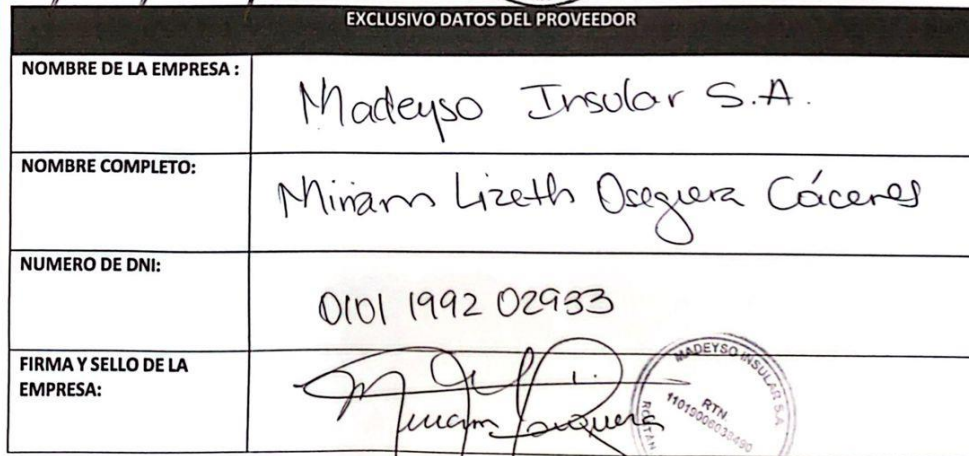 EXCLUSIVO DATOS DEL PROVEEDOR
NOMBRE DE LA EMPRESA :
Madeyso Insular S.A.
NOMBRE COMPLETO:
Miriam Lizeth Oseguera Cáceres
NUMERO DE DNI:
0101 1992 02933
FIRMA Y SELLO DE LA
EMPRESA:
MADEYSO INSULAR S.A
RTN
ROATÁN